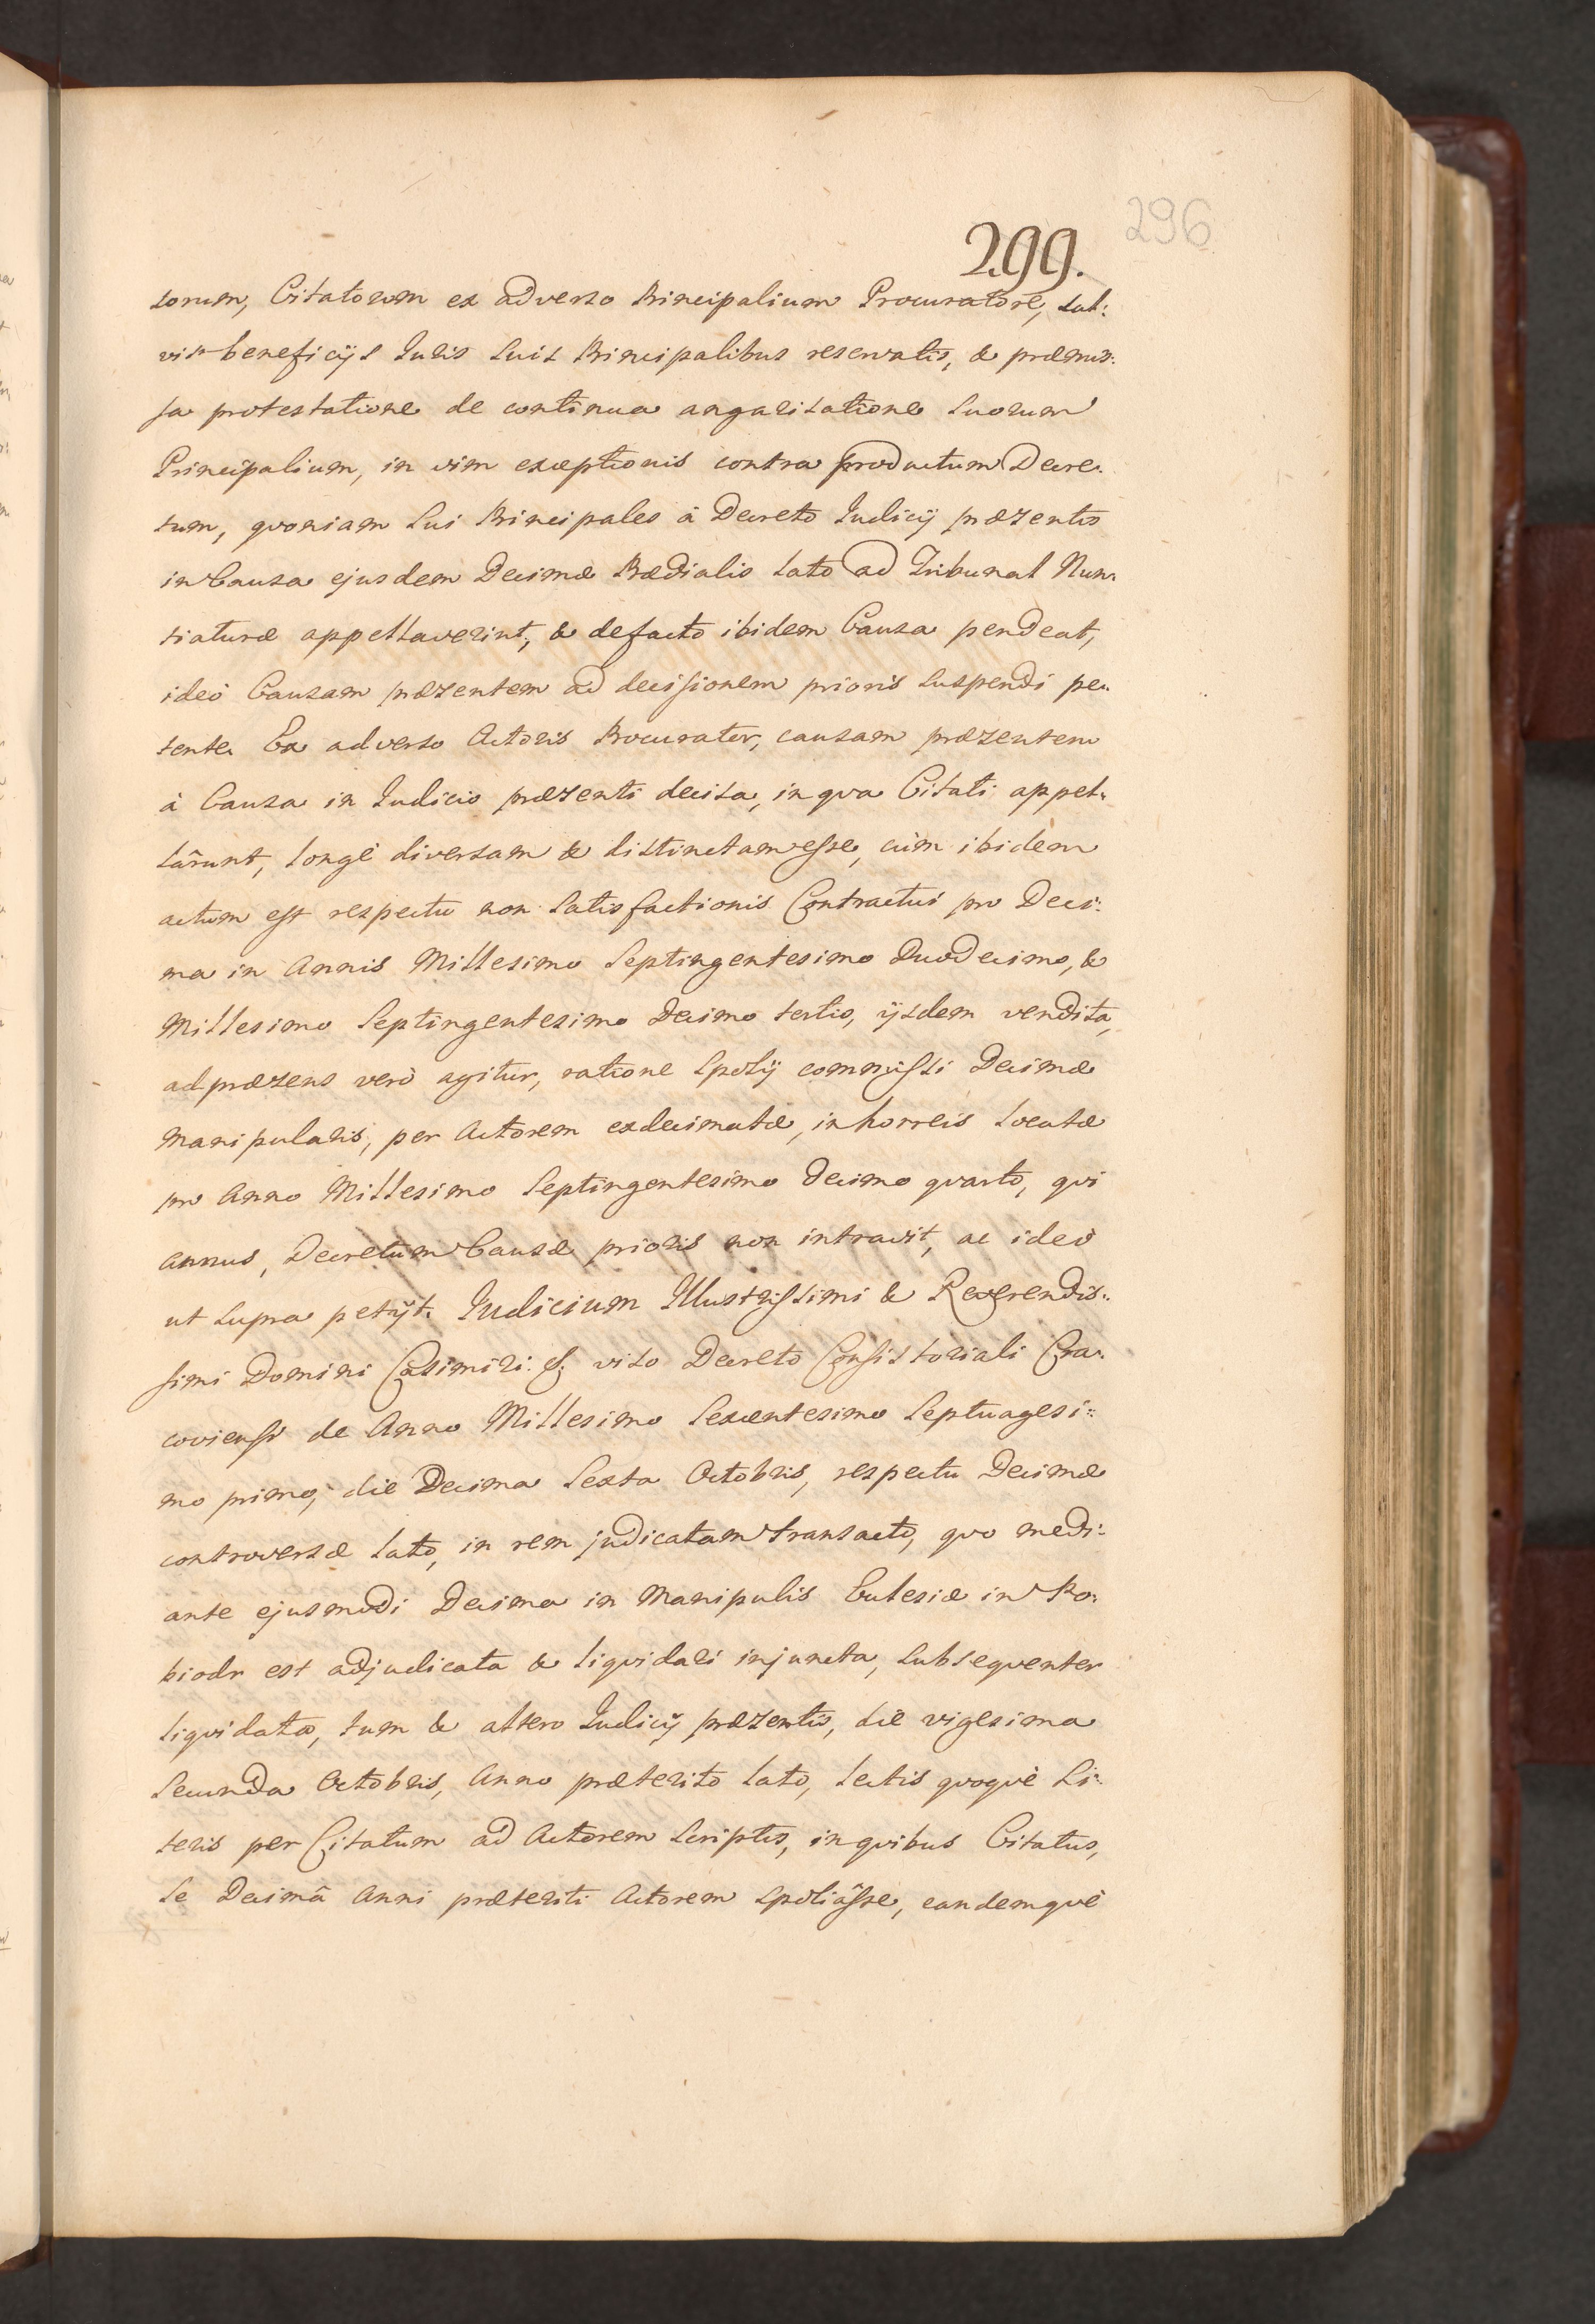 296
299.
sorum, Citatorum ex adverso Principalium Procuratore, sal:
vis beneficijs Iuris suis Principalibus reservatis, & præmis:
sa protestatione de continua angarisatione suorum
Principalium, in vim exceptionis contra productum Decre:
tum, quoniam sui Principales à Decreto Iudicij præsentis
in Causa ejusdem Decimæ Prædialis lato ad Tribunal Nun:
tiaturæ appellaverint, & defacto ibidem Causa pendeat,
ideò Causam præsentem ad decisionem prioris suspendi pe:
tente. Ex adverso Actoris Procurator, causam præsentem
à Causa in Iudicio præsenti decisa, in qua Citati appel:
lârunt, longè diversam & distinctam esse, cùm ibidem
actum est respectu non satisfactionis Contractus pro Deci:
ma in Annis Millesimo Septingentesimo Duodecimo, &
Millesimo Septingentesimo Decimo tertio, ijsdem vendita,
ad præsens verò agitur, ratione spolij commissi Decimæ
Manipularis, per Actorem exdecimatæ, in horreis locatæ
pro Anno Millesimo Septingentesimo Decimo quarto, qui
annus, Decretum Causæ prioris non intravit, ac ideò
ut supra petijt. Iudicium Illustrissimi & Reverendis:
simi Domini Casimiri: &. viso Decreto Consistoriali Cra:
coviensi de Anno Millesimo Sexcentesimo Septuagesi:
mo primo, die Decima Sexta Octobris, respectu Decimæ
controversæ lato, in rem judicatam transacto, quo medi:
ante ejusmodi Decima in Manipulis Ecclesiæ in Ko:
biodr est adjudicata & liquidari injuncta, subsequenter
liquidata, tum & altero Iudicij præsentis, die vigesima
Secunda Octobris, Anno præterito lato, lectis quoquè Li:
teris per Citatum ad Actorem scriptis, in quibus Citatus,
se Decimâ Anni præteriti Actorem spoliâsse, eandemquè